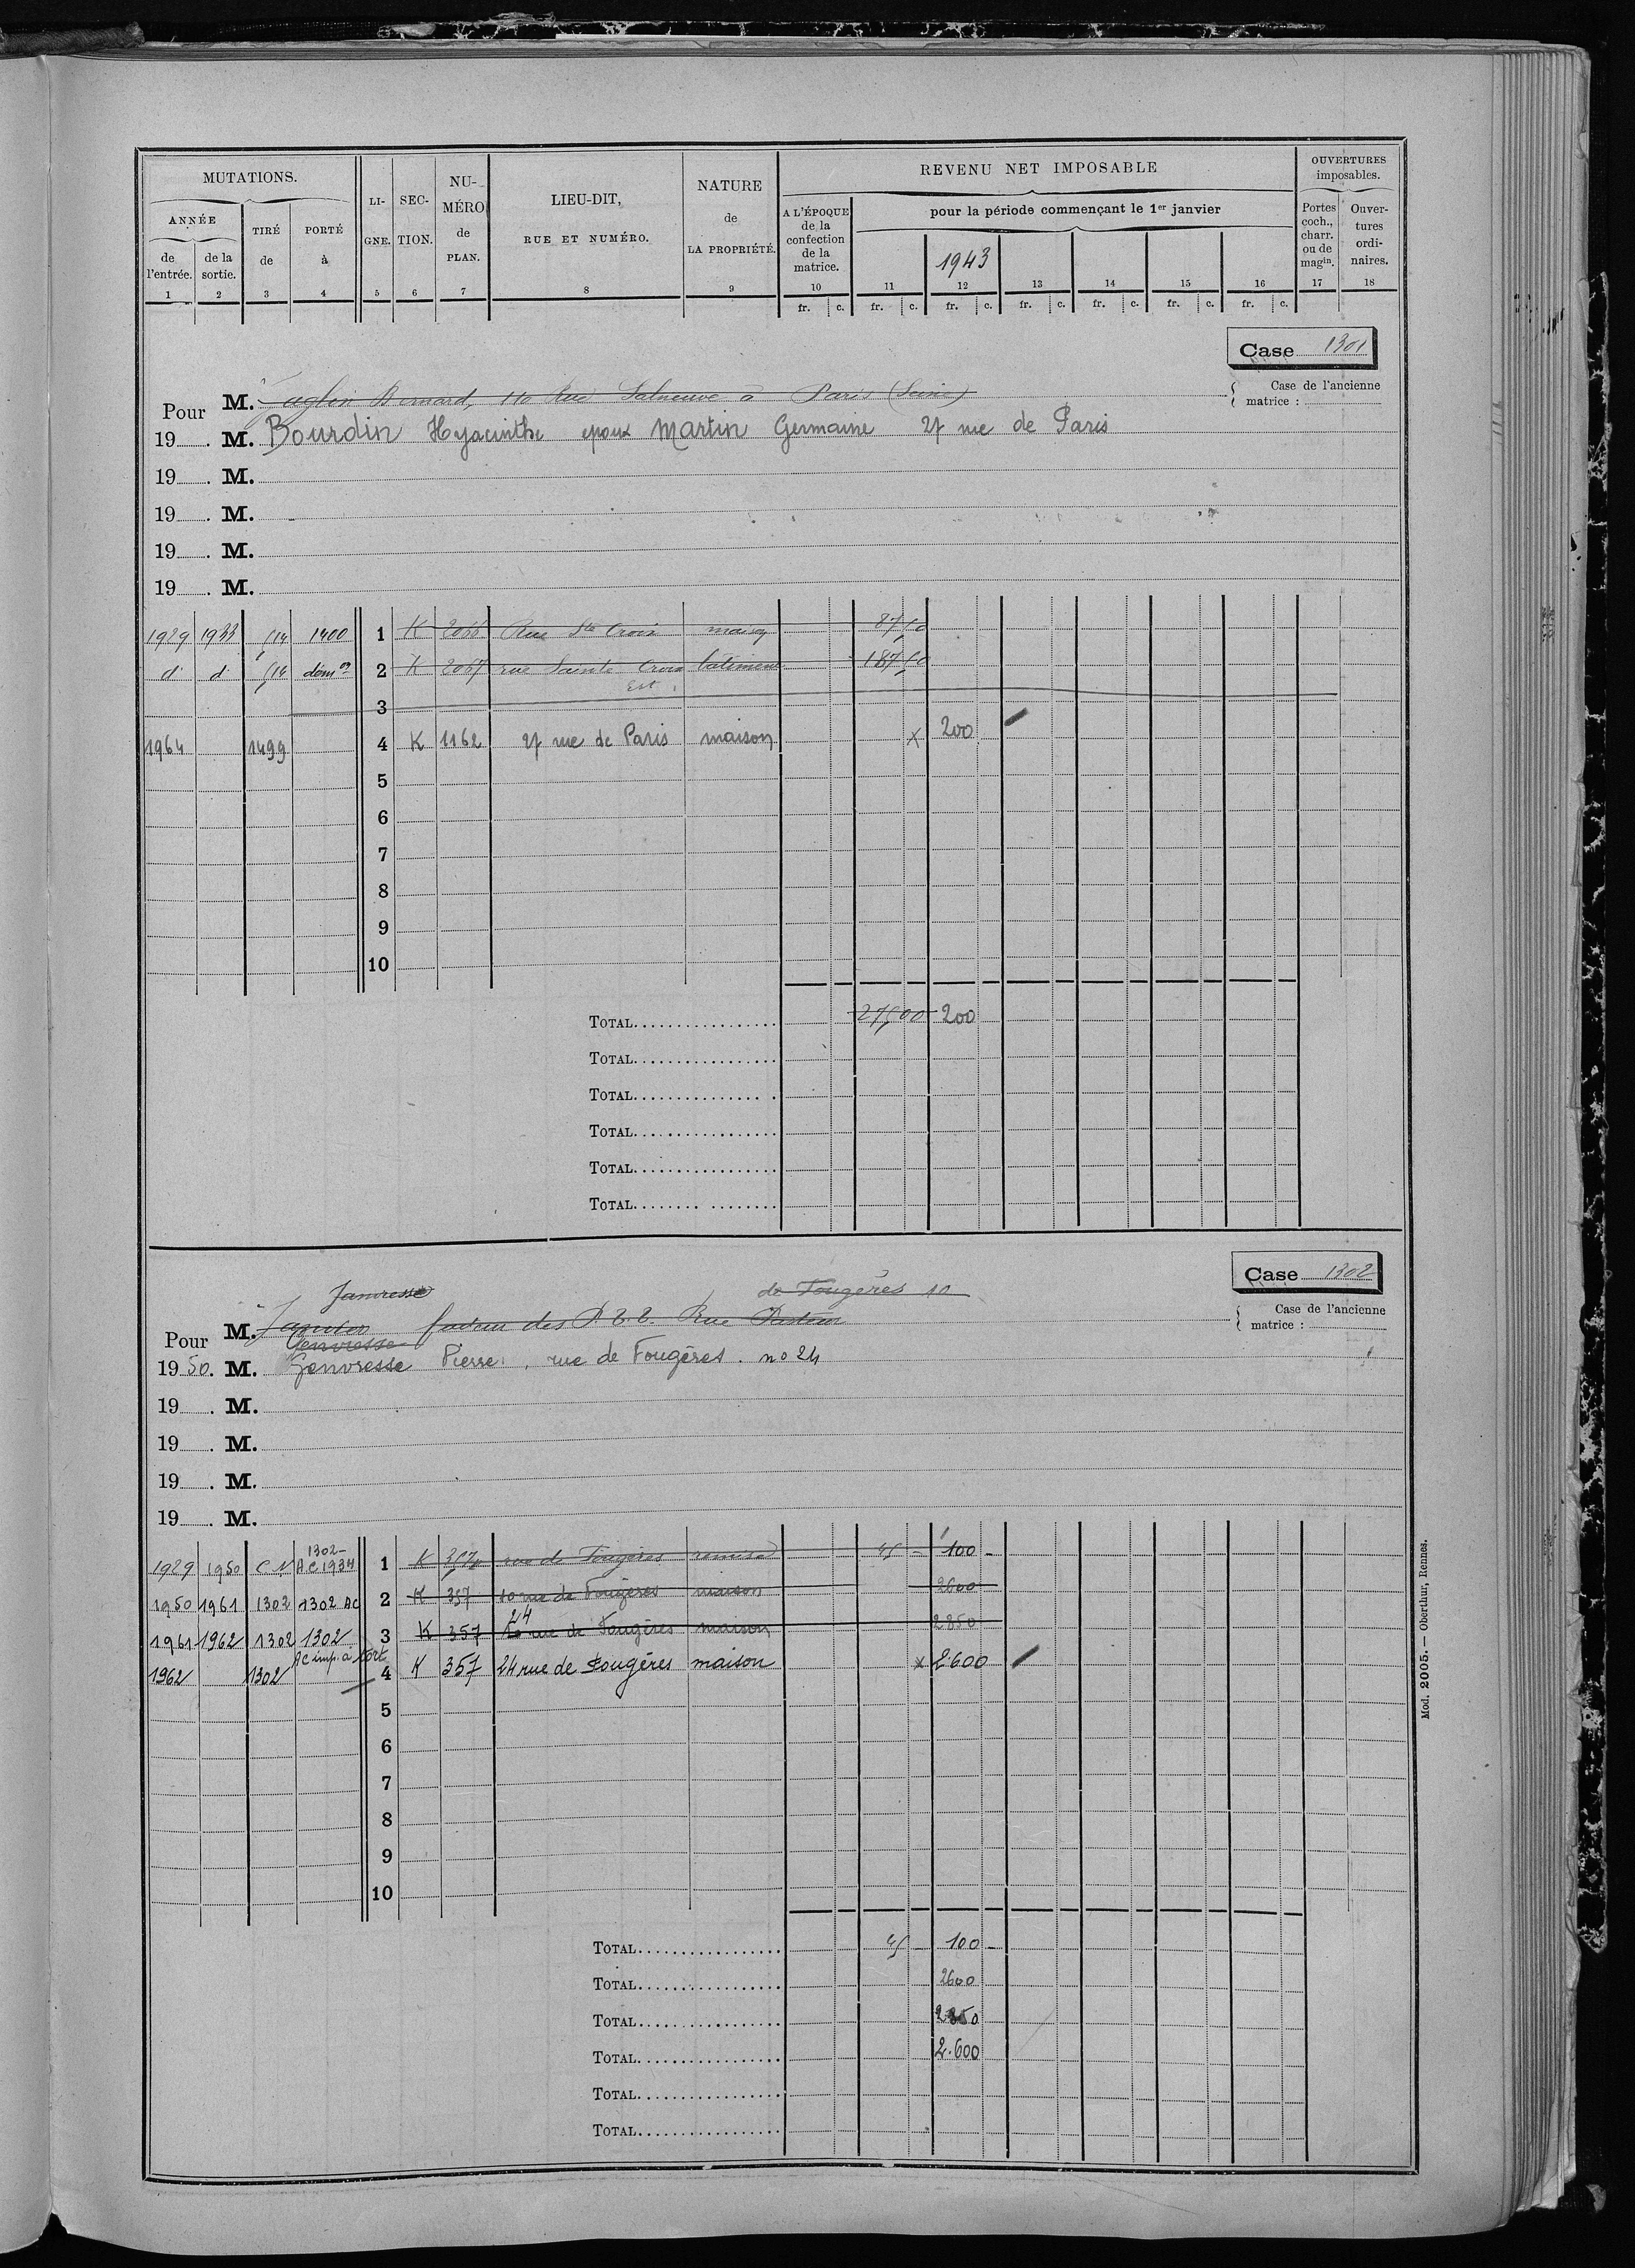 MUTATIONS. LI-GNE. SEC-TION. NU-MÉRO de PLAN. LIEU-DIT, RUE ET NUMÉRO. NATURE de LA PROPRIÉTÉ. REVENU NET IMPOSABLE OUVERTURES imposables.
ANNÉE TIRÉ de PORTÉ à A L'ÉPOQUE de la confection de la matrice. pour la période commençant le 1er janvier Portes coch., charr. ou de magin. Ouver-tures ordi-naires.
de l'entrée. de la sortie. 1943
1 2 3 4 5 6 7 8 9 10 11 12 13 14 15 16 17 18
fr. c. fr. c. fr. c. fr. c. fr. c. fr. c. fr. c.
Case 1301
Case de l'ancienne matrice :
Pour M. Bernard, Rue à Paris (Seine)
19 . M. Bourdin Hyacinthe époux Martin Germaine 27 rue de Paris
19 . M.
19 . M.
19 . M.
19 . M.
1929 1933 514 1400 1 K 2066 Rue Ste Croix maison 87 50
d° d° 514 démon 2 K 2067 rue Sainte Croix batiment 187 50
Est
3
1964 1499 4 K 1162 27 rue de Paris maison x 200
5
6
7
8
9
10
TOTAL 275,00 200
TOTAL
TOTAL
TOTAL
TOTAL
TOTAL
Case 1302
Case de l'ancienne matrice :
Janvresse de Fougères 10
Pour M. Janvier facteur des P.T.T. Rue Pasteur
Genvresse
1950. M. Genvresse Pierre, rue de Fougères. no 24
19 . M.
19 . M.
19 . M.
19 . M.
1302-
1929 1950 C N AC 1934 1 K 357p rue de Fougères remise 45 - 100 -
1950 1961 1302 1302 AC 2 K 357 10 rue de Fougères maison 2600
24
1961 1962 1302 1302 3 K 357 10 rue de Fougères maison 2850
AC imp. à tort
1962 1302 4 K 357 24 rue de Fougères maison x 2600
5
6
7
8
9
10
TOTAL 45 - 100 -
TOTAL 2600
TOTAL 2850
TOTAL 2.600
TOTAL
TOTAL
Mod. 2005. — Oberthur, Rennes.